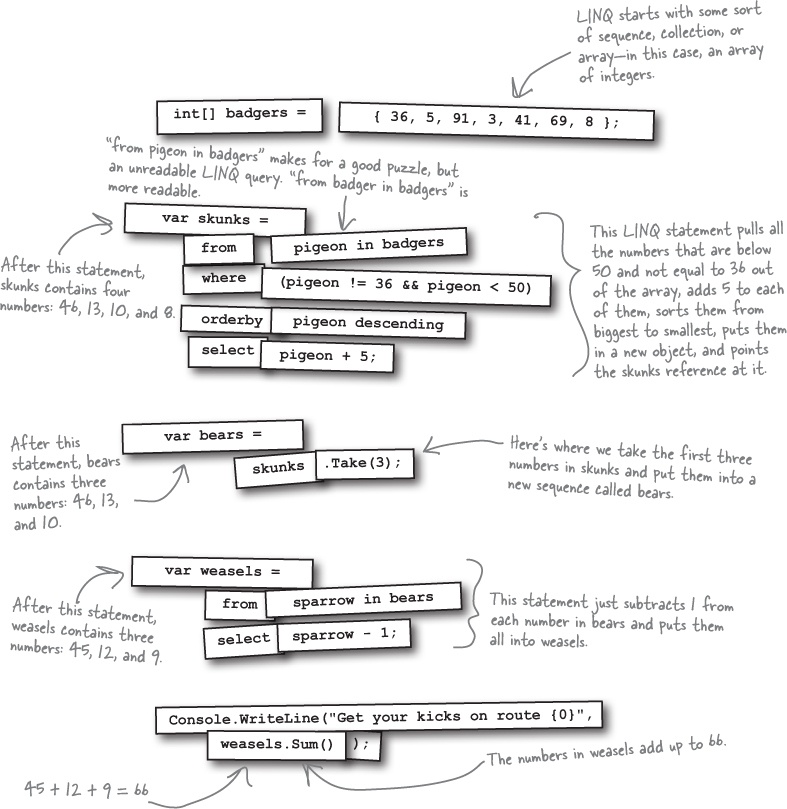 LINQ starts with some sort
of sequence, collection, or
array—in this case, an array
of integers.
int[] badgers =
{ 36, 5, 91, 3, 41, 69, 8 };
"from pigeon in badgers" makes for a good puzzle, but
an unreadable LINQ query. "from badger in badgers" is
more readable.
var skunks =
from
pigeon in badgers
where
(pigeon != 36 && pigeon < 50)
orderby
pigeon descending
select
pigeon + 5;
After this statement,
skunks contains four
numbers: 46, 13, 10, and 8.
This LINQ statement pulls all
the numbers that are below
50 and not equal to 36 out
of the array, adds 5 to each
of them, sorts them from
biggest to smallest, puts them
in a new object, and points
the skunks reference at it.
var bears =
skunks
.Take(3);
After this
statement, bears
contains three
numbers: 46, 13,
and 10.
Here's where we take the first three
numbers in skunks and put them into a
new sequence called bears.
var weasels =
from
sparrow in bears
select
sparrow - 1;
After this statement,
weasels contains three
numbers: 45, 12, and 9.
This statement just subtracts 1 from
each number in bears and puts them
all into weasels.
Console.WriteLine("Get your kicks on route {0}",
weasels.Sum()
);
The numbers in weasels add up to 66.
45 + 12 + 9 = 66